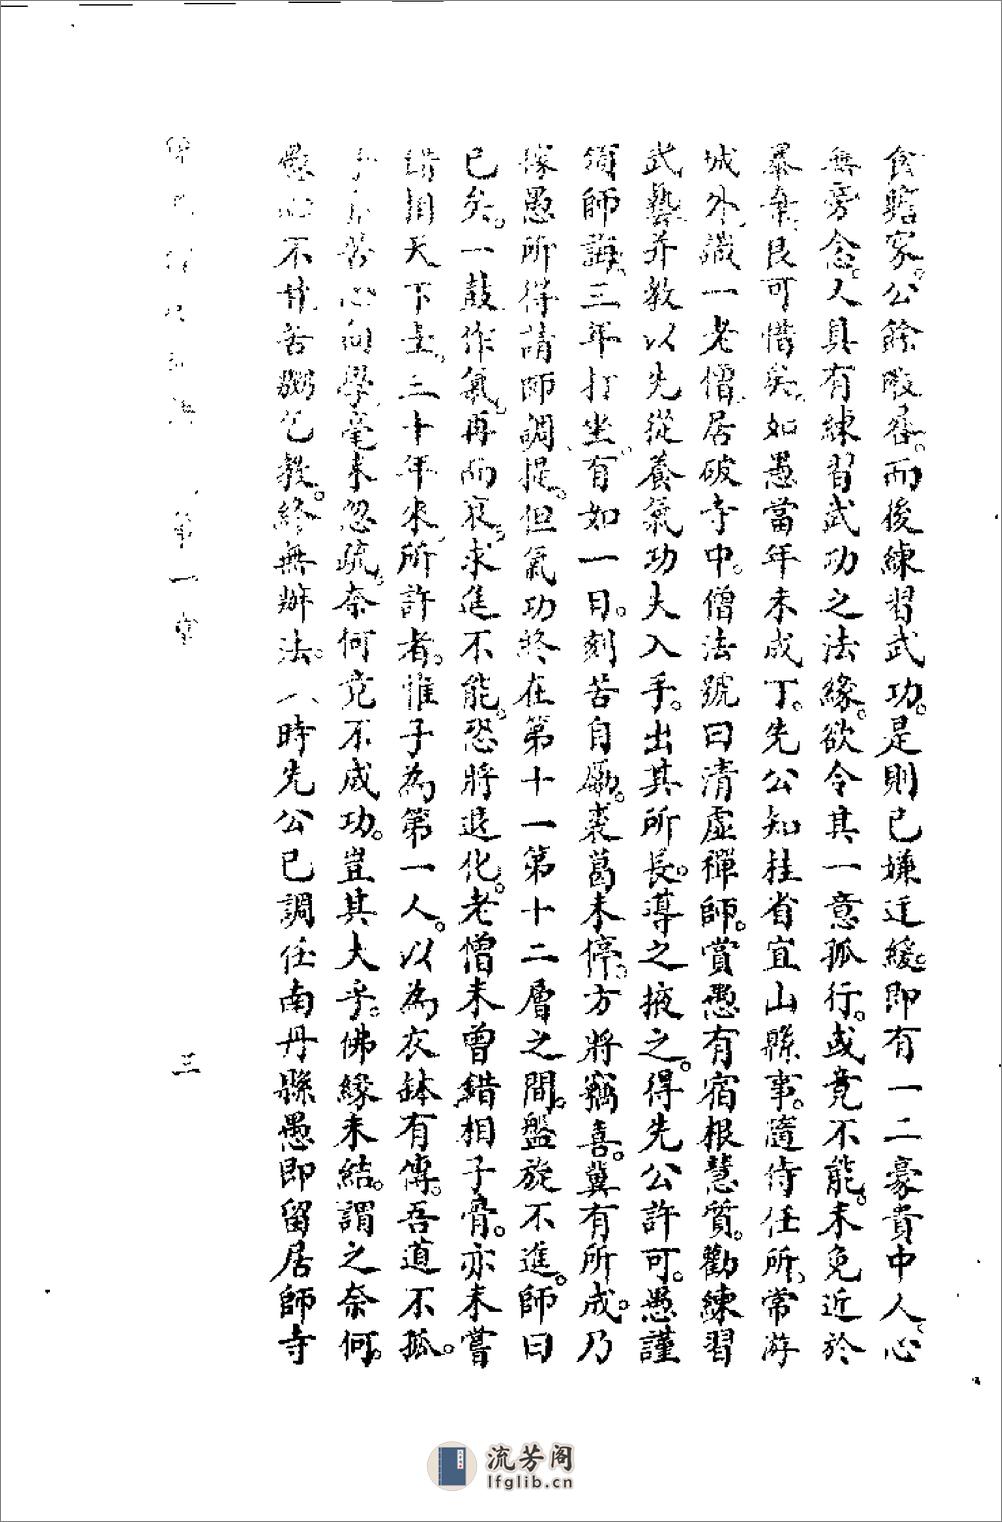 食贍家。公餘暇晷。而後練習武功。是則已嫌迂緩。即有一二豪貴中人。心
無旁念。人具有練習武功之法緣。欲令其一意孤行。或竟不能。未免近於
暴棄。良可惜矣。如愚當年未成丁。先公知桂省宜山縣事。隨侍任所。常游
城外。識一老僧。居破寺中。僧法號曰清虛禪師。賞愚有宿根慧質。勸練習
武藝。并教以先從養氣功夫入手。出其所長。導之掖之。得先公許可。愚謹
領師誨。三年打坐。有如一日。刻苦自勵。裘葛未停。方將竊喜。冀有所成。乃
據愚所得。請師調提。但氣功終在第十一第十二層之間。盤旋不進。師曰
已矣。一鼓作氣。再而衰。求進不能。恐將退化。老僧未曾錯相子骨。亦未嘗
錯相天下士。三十年來。所許者。惟子為第一人。以為衣缽有傳。吾道不孤。
苦心向學。毫未忽疏。奈何竟不成功。豈其天乎。佛緣未結。謂之奈何。
愚心不甘。苦鄹乞教。終無辦法。八時先公已調任南丹縣。愚即留居師寺
第一章
三
流芳阁
lfglib.cn